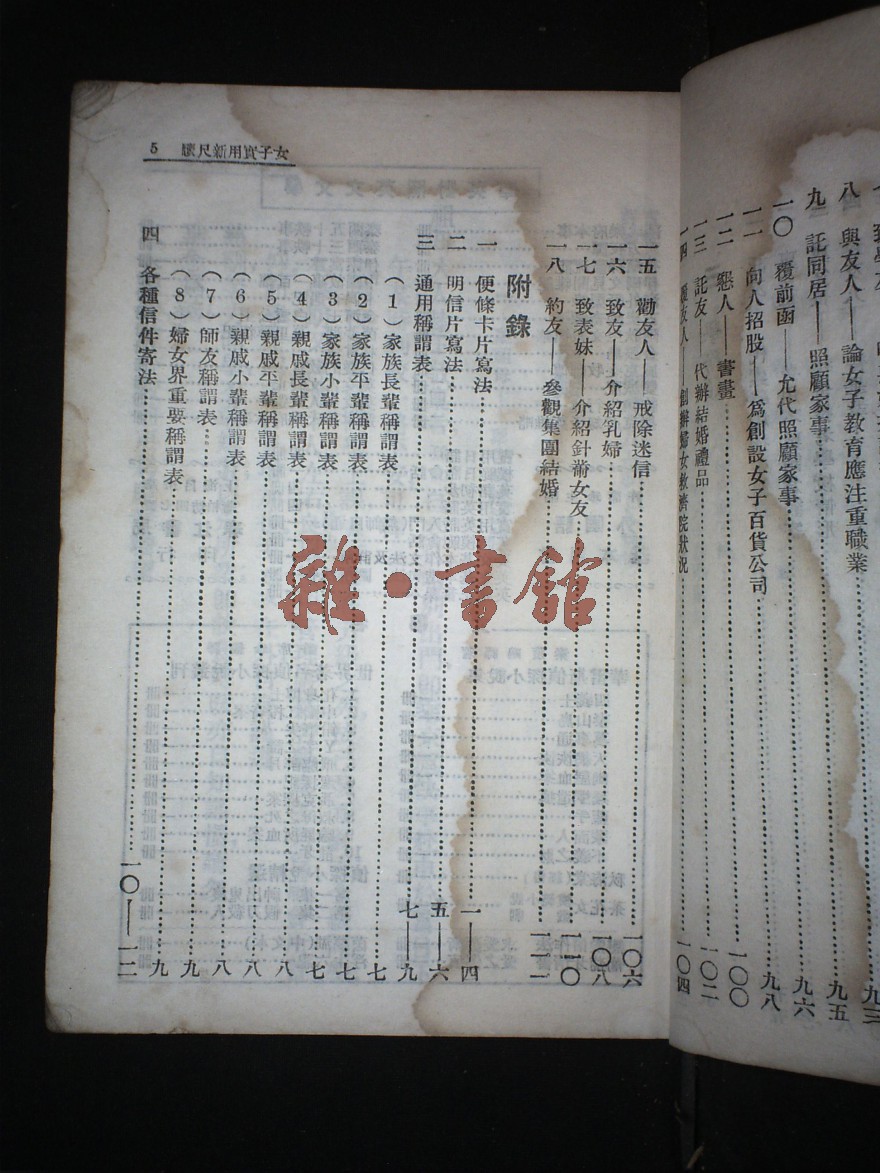 八 與友人——論女子教育應注重職業……九五
九 託同居——照顧家事……九六
一〇 覆前函——允代照顧家事……九八
一一 向人招股——爲創設女子百貨公司
一二 懇人——書畫……一〇〇
一三 託友——代辦結婚禮品……一〇二
一四 覆友人——創辦婦女救濟院狀況……一〇四
女子實用新尺牘 5
一五 勸友人——戒除迷信……一〇六
一六 致友——介紹乳婦……一〇八
一七 致表妹——介紹針黹女友……一一〇
一八 約友——參觀集團結婚……一一一
附錄
一 便條卡片寫法……一——四
二 明信片寫法……五——六
三 通用稱謂表……七——九
（1）家族長輩稱謂表……七
（2）家族平輩稱謂表……七
（3）家族小輩稱謂表……七
（4）親戚長輩稱謂表……八
（5）親戚平輩稱謂表……八
（6）親戚小輩稱謂表……八
（7）師友稱謂表……九
（8）婦女界重要稱謂表……九
四 各種信件寄法……一〇——一二
雜·書館